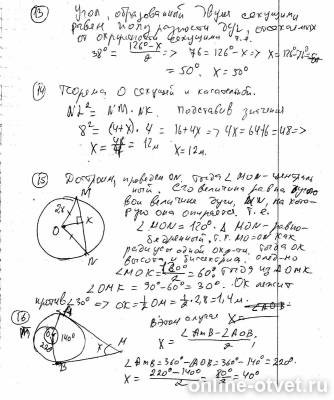 13) Угол, образованный двумя секущими
равен полуразности дуг, отсекаемых
от окружности секущими т.е.
38° = 126°-x / 2 => 76 = 126°-x => x = 126°-76°
= 50°. x = 50°
14) Теорема о секущей и касательной.
NL² = NM · NK. Подставив значения
8² = (4+x)·4 = 16+4x => 4x = 64-16 = 48 =>
x = 48/4 = 12м x = 12м.
15) Достроим, проведем ON, тогда ∠MON - централь-
ной. Его величина равна
величине дуги, MN, на кото-
рую она опирается, т.е.
∠MON = 120°. ∆ MON - равно-
бедренный, т.к. MO=ON как
радиусы одной окр-ти, тогда OK
высота и биссектриса, след-но
∠MOK = /2 = 60°, тогда из ∆OMK
∠OMK = 90°-60° = 30°. OK лежит
против ∠30° => OK = ½ OM = ½·2,8 = 1,4 м.
M
2,8
x
O
N
16)
A
O
220°
140°
B
x
M
В этом случае x =
x = ∠AmB - ∠AOB / 2 ;
∠AmB = 360° - ∠AOB = 360° - 140° = 220°
x = 220° - 140° / 2 = 80° / 2 = 40°
online-otvet.ru